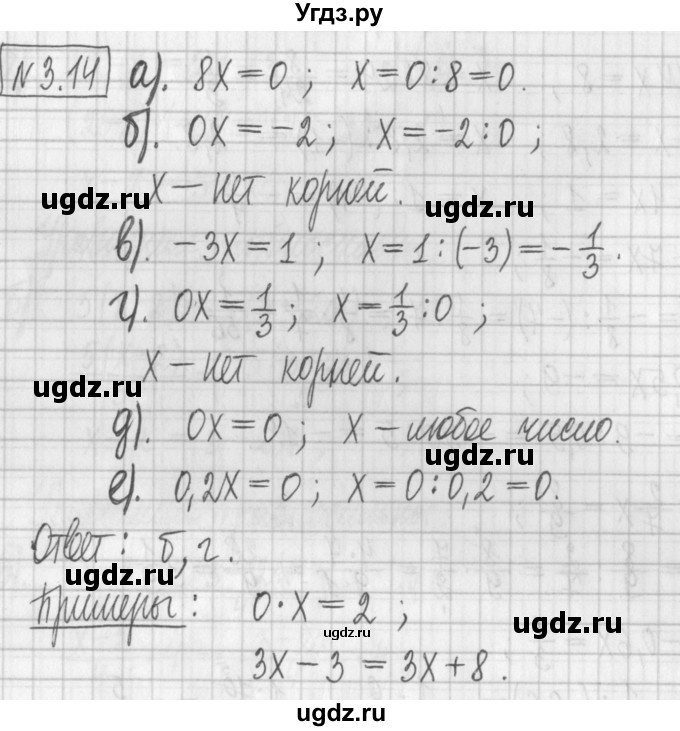 Угдз.ру
№3.14 а). 8x = 0 ; x = 0 : 8 = 0.
б). 0x = -2 ; x = -2 : 0 ;
x — нет корней.
ugdz.ru ugdz.ru
в). -3x = 1 ; x = 1 : (-3) = -1/3 .
г). 0x = 1/3 ; x = 1/3 : 0 ;
x — нет корней.
ugdz.ru ugdz.ru
д). 0x = 0 ; x — любое число.
ugdz.ru
е). 0,2x = 0 ; x = 0 : 0,2 = 0.
Ответ : б, г.
ugdz.ru
Примеры : 0 · x = 2 ;
ugdz.ru ugdz.ru ugdz.ru
3x - 3 = 3x + 8 .
ugdz.ru